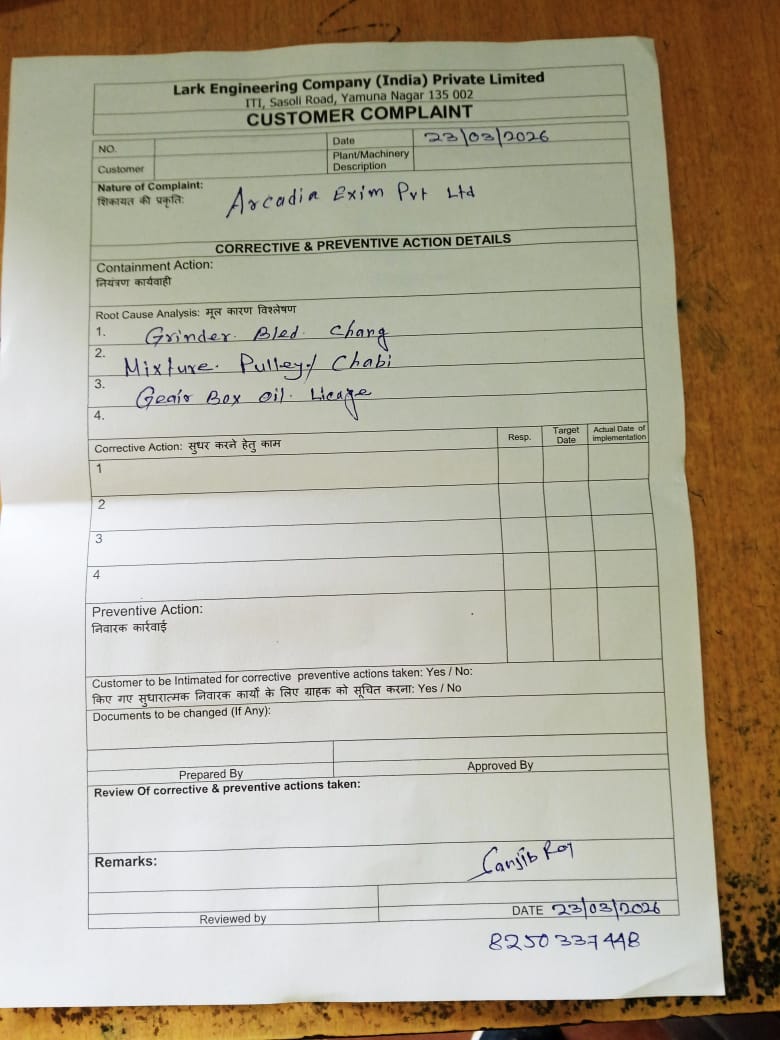 Lark Engineering Company (India) Private Limited
ITI, Sasoli Road, Yamuna Nagar 135 002
CUSTOMER COMPLAINT
NO.
Date 23/03/2026
Customer
Plant/Machinery Description
Nature of Complaint:
शिकायत की प्रकृति: Arcadia Exim Pvt Ltd
CORRECTIVE & PREVENTIVE ACTION DETAILS
Containment Action:
नियंत्रण कार्यवाही
Root Cause Analysis: मूल कारण विश्लेषण
1. Grinder. Bled. Chang
2. Mixture. Pulley/ Chabi
3. Geair Box oil. Licage
4.
Corrective Action: सुधर करने हेतु काम
Resp.
Target Date
Actual Date of implementation
1
2
3
4
Preventive Action:
निवारक कार्रवाई
Customer to be Intimated for corrective preventive actions taken: Yes / No:
किए गए सुधारात्मक निवारक कार्यो के लिए ग्राहक को सूचित करना: Yes / No
Documents to be changed (If Any):
Prepared By
Approved By
Review Of corrective & preventive actions taken:
Remarks:
Sanjib Roy
Reviewed by
DATE 23/03/2026
8250337448